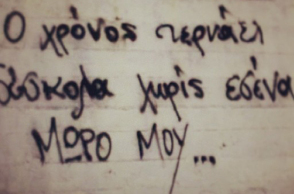 Ο χρόνος περνάει
δύσκολα χωρίς εσένα
ΜΩΡΟ ΜΟΥ...